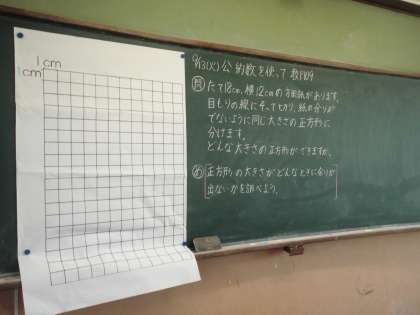 1cm
1cm
9/13(火)公約数を使って 教P109
問 たて18cm、横12cmの方眼紙があります。
目もりの線にそって切り、紙の余りが
でないように同じ大きさの正方形に
分けます。
どんな大きさの正方形ができますか。
め 正方形の大きさがどんなときに余りが
出ないかを調べよう。